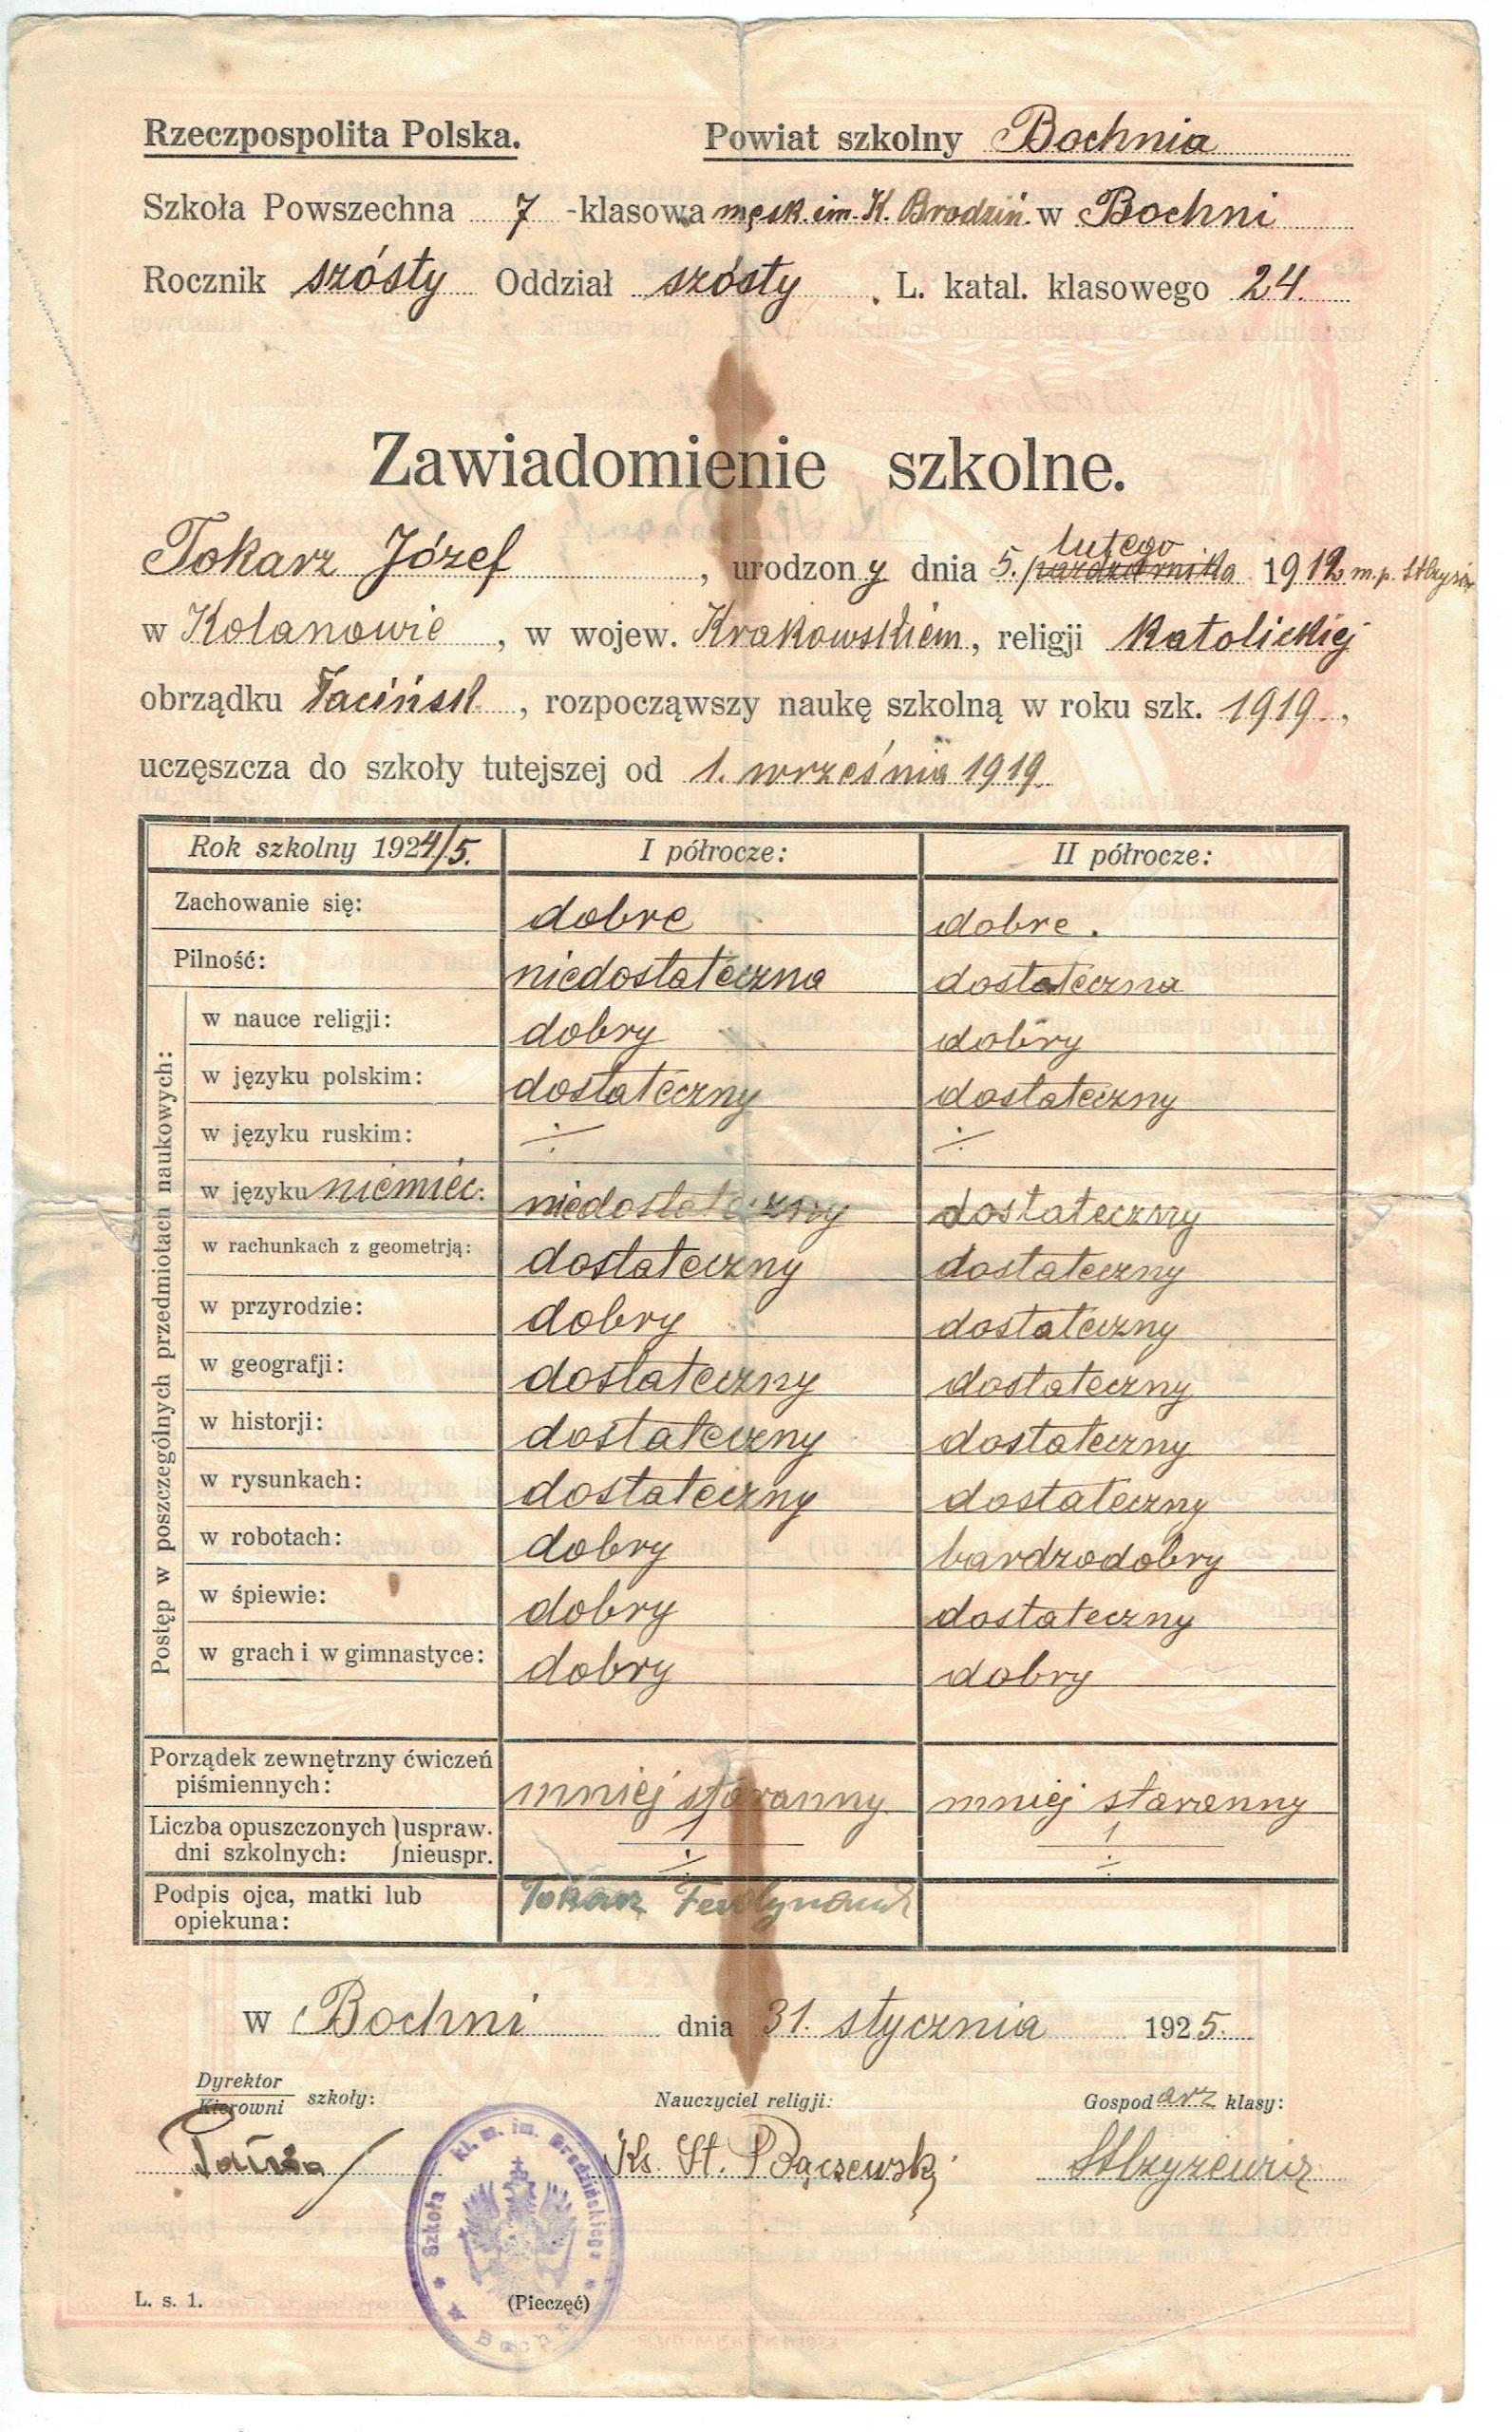 Rzeczpospolita Polska. Powiat szkolny Bochnia
Szkoła Powszechna 7 -klasowa męsk. im. K. Brodziń. w Bochni
Rocznik szósty Oddział szósty . L. katal. klasowego 24.
Zawiadomienie szkolne.
lutego
Tokarz Józef , urodzony dnia 5. października 1912 m.p.
w Kolanowie , w wojew. Krakowskiem, religji katolickiej
obrządku łacińsk. , rozpocząwszy naukę szkolną w roku szk. 1919 ,
uczęszcza do szkoły tutejszej od 1. września 1919
Rok szkolny 1924/5. I półrocze: II półrocze:
Zachowanie się: dobre dobre .
Pilność: niedostateczna dostateczna
Postęp w poszczególnych przedmiotach naukowych:
w nauce religji: dobry dobry
w języku polskim: dostateczny dostateczny
w języku ruskim: ÷ ÷
w języku niemiec: niedostateczny dostateczny
w rachunkach z geometrją: dostateczny dostateczny
w przyrodzie: dobry dostateczny
w geografji: dostateczny dostateczny
w historji: dostateczny dostateczny
w rysunkach: dostateczny dostateczny
w robotach: dobry bardzodobry
w śpiewie: dobry dostateczny
w grach i w gimnastyce: dobry dobry
Porządek zewnętrzny ćwiczeń
piśmiennych: mniej staranny mniej staranny
Liczba opuszczonych } uspraw. 1 1
dni szkolnych: } nieuspr. ÷ ÷
Podpis ojca, matki lub Tokarz Ferdynand
opiekuna:
w Bochni dnia 31. stycznia 1925.
Dyrektor
Kierowni szkoły: Nauczyciel religji: Gospodarz klasy:
Ks. St. Bączewski
Szkoła kl. m. im. Brodzińskiego
w Bochni
L. s. 1. (Pieczęć)